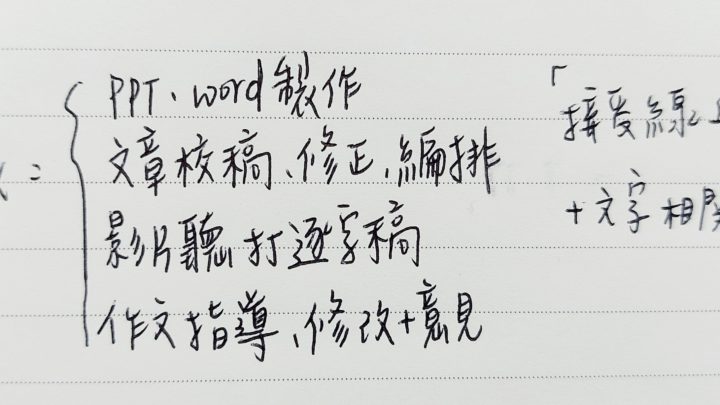 PPT、word製作
文章校稿、修正、編排
影片聽打逐字稿
作文指導、修改+意見
「接受線上
+文字相關